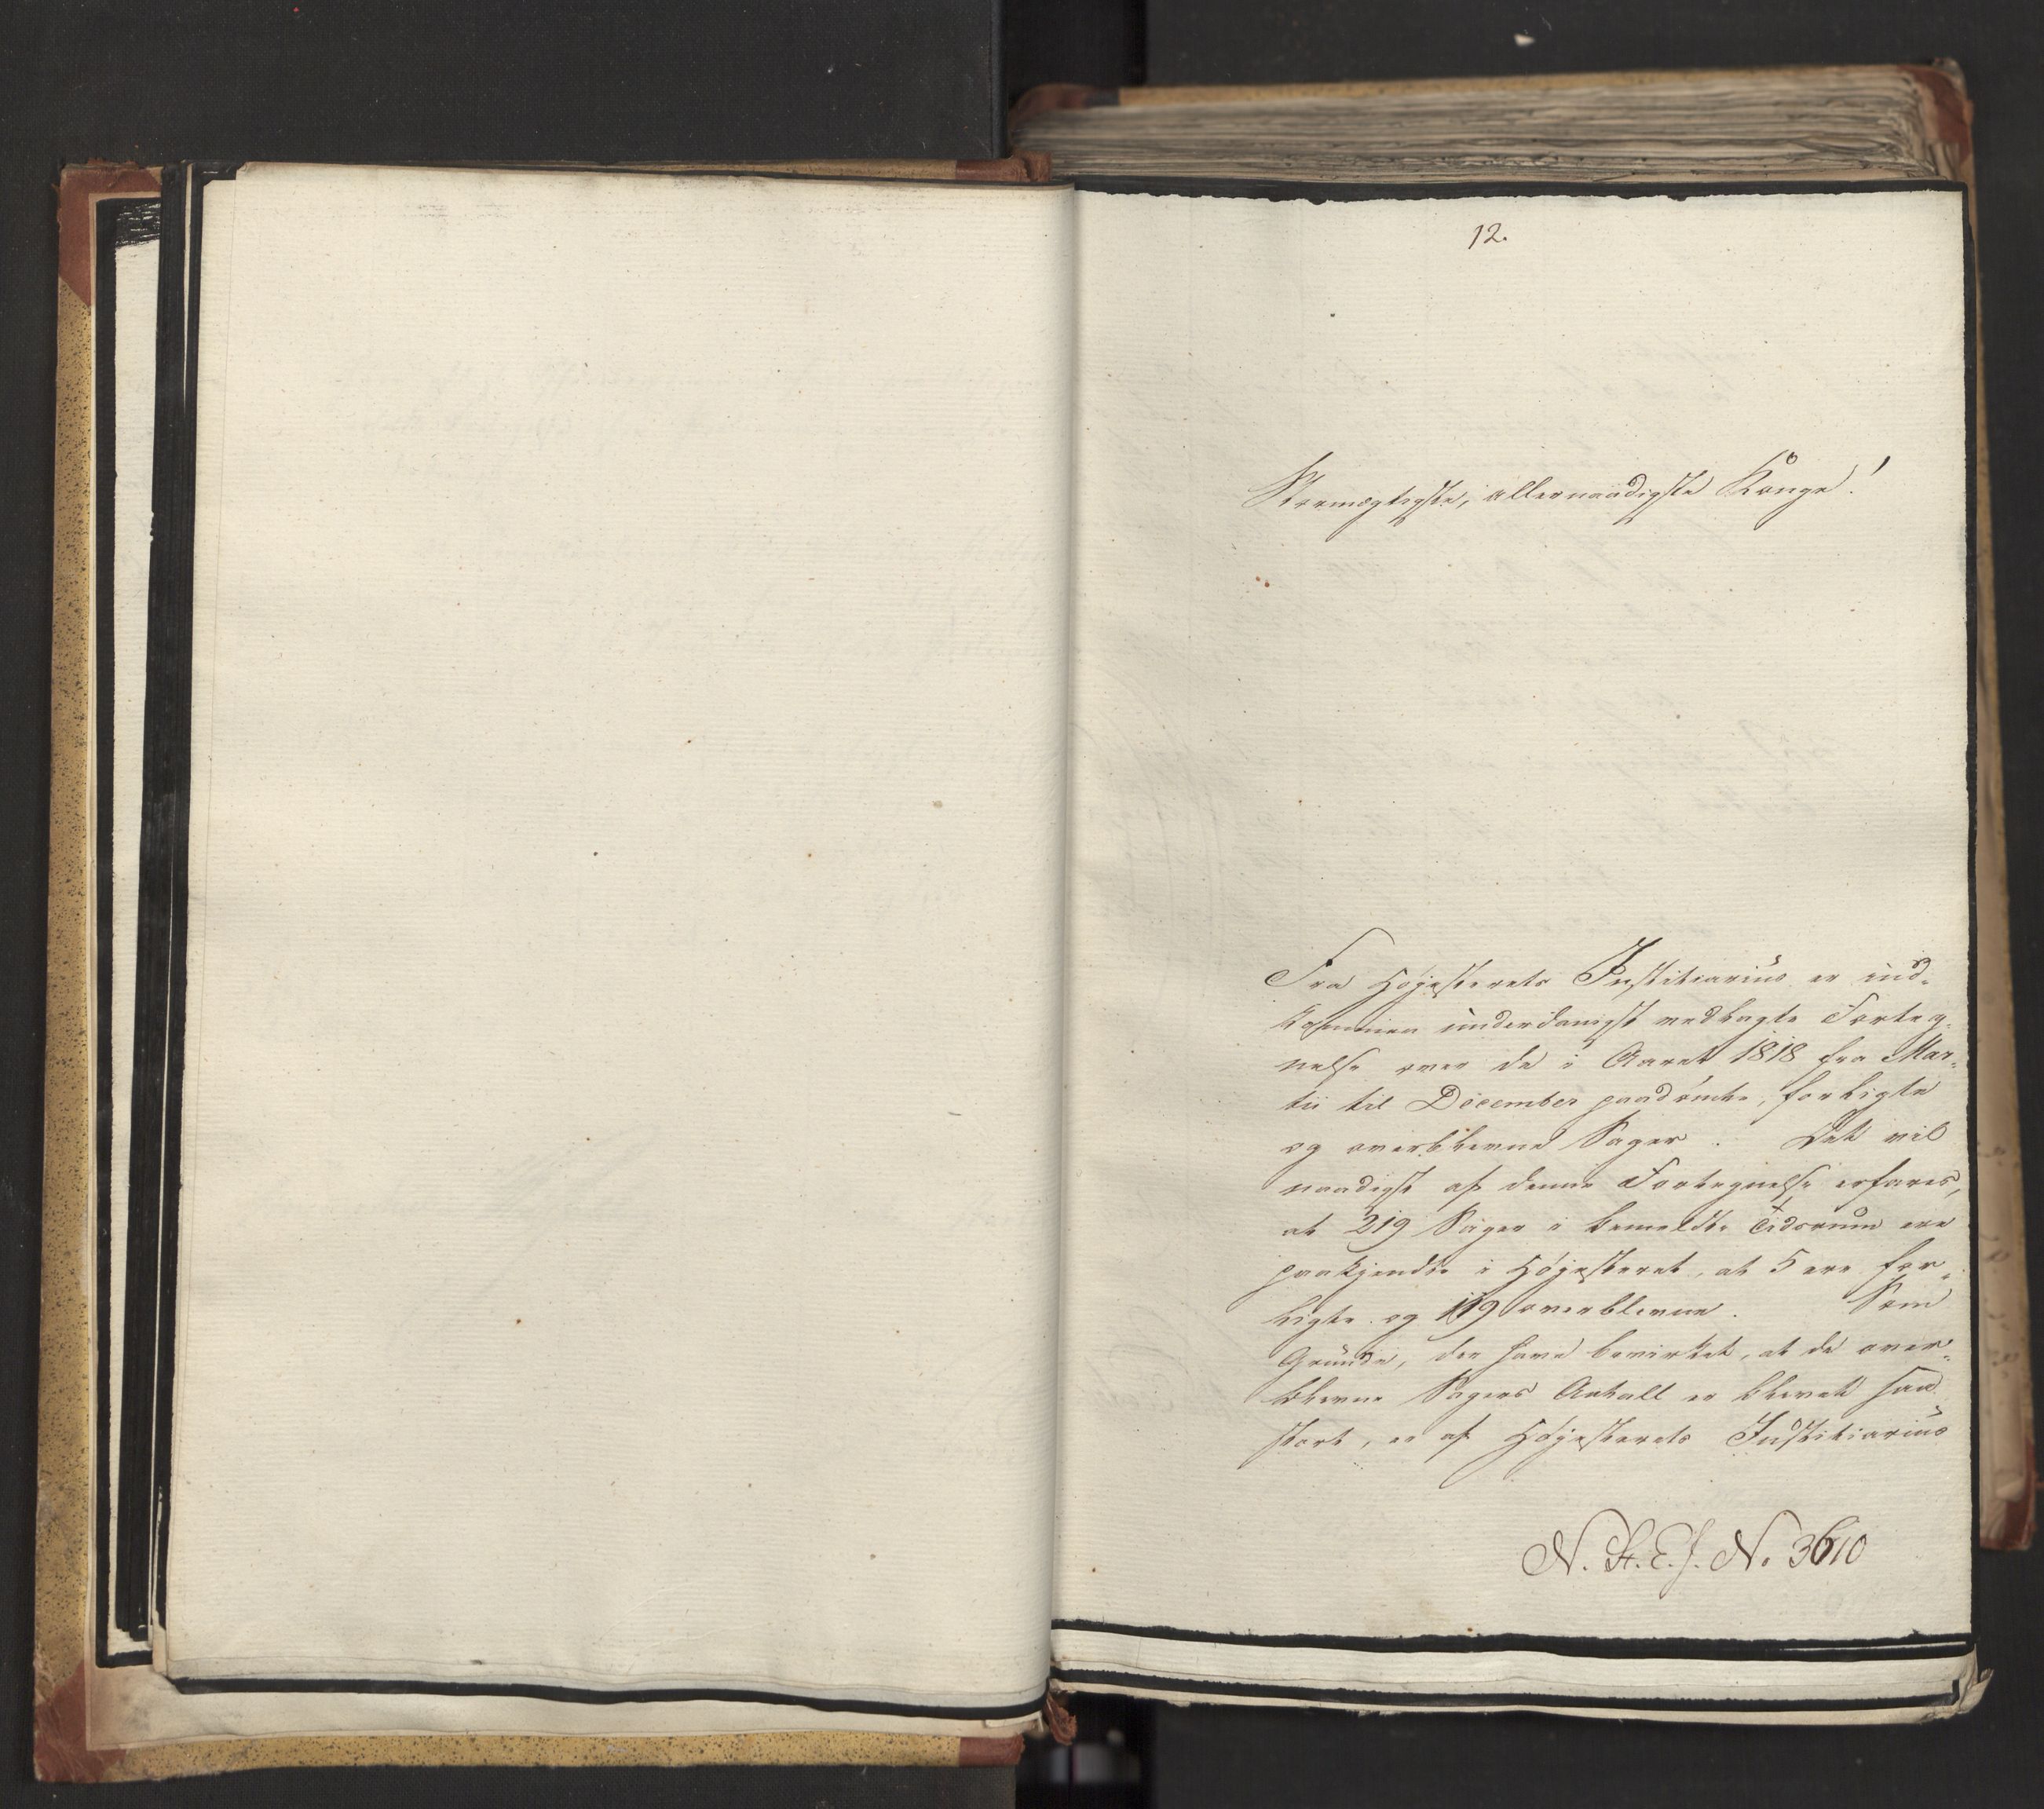 12.
Stormægtigste, allernaadigste Konge!
Fra Høiesterets Justitiarius er ind-
kommen underdanigst vedlagte Forteg-
nelse over de i Aaret 1818 fra Mar-
tii til December paadømte, forligte
og overblevne Sager. Det vil
naadigst af denne Fortegnelse erfares,
at 219 Sager i bemeldte Tidsrum ere
paakjendte i Høiesteret, at 5 ere for-
ligte og 119 overblevne. Som
Grunde, der have bevirket, at de over-
blevne Sagers Antall er blevet saa
stort, er af Høiesterets Justitiarius
N. St. E. J. No. 3610